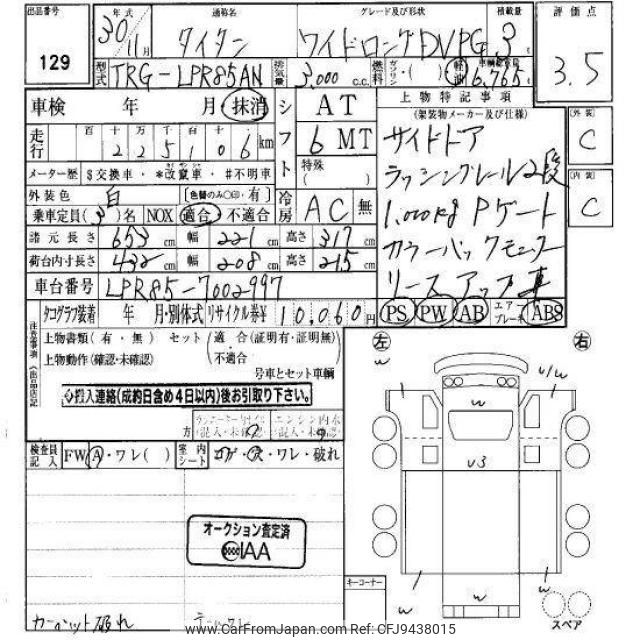 出品番号
129
年式 30 年 11 月
通称名 タイタン
グレード及び形状 ワイドロングDVPG
積載量 3 t
評価点 3.5
型式 TRG-LPR85AN
排気量 3,000 c.c.
燃料 ガソリン・( )・軽油
車輌総重量 6,765
車検 年 月 抹消
走行 百 十 万 千 百 十 一
2 2 5 1 0 6 km
メーター歴 $交換車・*改竄車・#不明車
外装色 白 [色替のみ○印・有]
乗車定員(3)名 NOX 適合 不適合
諸元長さ 653 cm 幅 221 cm 高さ 317 cm
荷台内寸長さ 432 cm 幅 208 cm 高さ 215 cm
車台番号 LPR85-7002997
シフト
AT
6 MT
特殊
( )
冷房 AC 無
上物特記事項
(架装物メーカー及び仕様)
サイドドア
ラッシングレール2段
1,000kg Pゲート
カラーバックモニター
リースアップ車
PS PW AB エアーブレーキ ABS
外装 C
内装 C
タコグラフ装着 年 月・別体式 リサイクル券¥ 10,060 円
注意事項(出品店記
上物書類(有・無) セット(適合(証明有・証明無)
上物動作(確認・未確認) ・不適合
号車とセット車輌
◇搬入連絡(成約日含め4日以内)後お引取り下さい。
検査員記入 FW A・ワレ( ) 室内シート コゲ・ス・ワレ・破れ
オークション査定済
IAA
キーコーナー
左 右
w
w
u/w
u3
w
w
w
スペア
カーペット破れ
www.CarFromJapan.com Ref: CFJ9438015